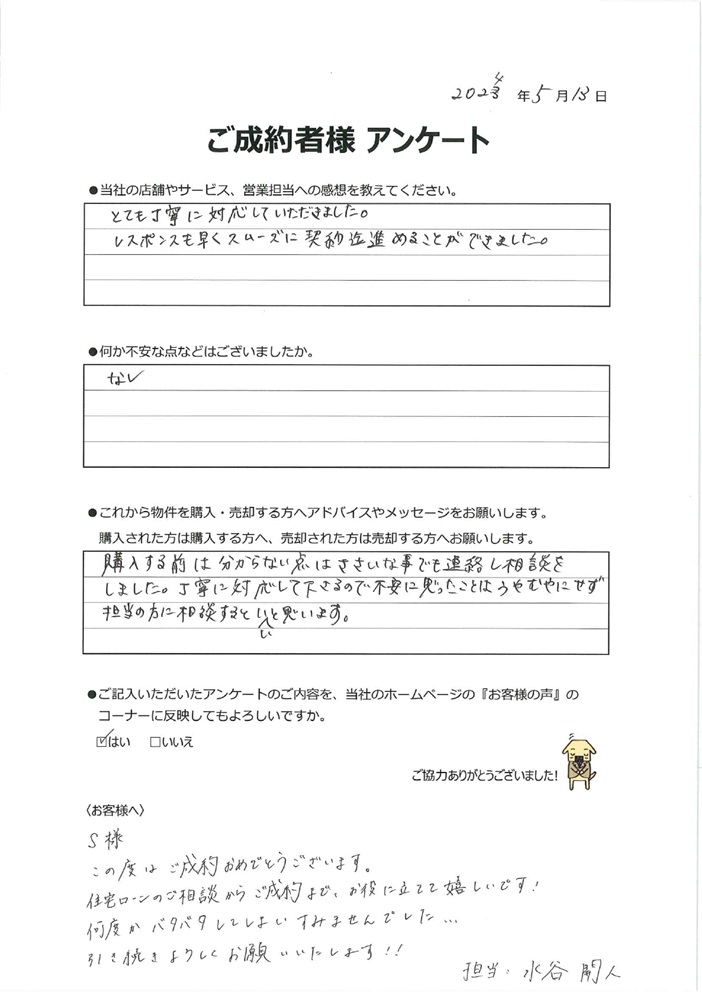 2024年5月13日
ご成約者様 アンケート
●当社の店舗やサービス、営業担当への感想を教えてください。
とても丁寧に対応していただきました。
レスポンスも早くスムーズに契約迄進めることができました。
●何か不安な点などはございましたか。
なし
●これから物件を購入・売却する方へアドバイスやメッセージをお願いします。
購入された方は購入する方へ、売却された方は売却する方へお願いします。
購入する前は分からない点はささいな事でも連絡し相談を
しました。丁寧に対応して下さるので不安に思ったことはうやむやにせず
担当の方に相談するといいと思います。
●ご記入いただいたアンケートのご内容を、当社のホームページの『お客様の声』の
コーナーに反映してもよろしいですか。
☑はい □いいえ
ご協力ありがとうございました!
〈お客様へ〉
S様
この度はご成約おめでとうございます。
住宅ローンのご相談からご成約まで、お役に立てて嬉しいです!
何度かバタバタしてしまいすみませんでした...
引き続きよろしくお願いいたします!!
担当:水谷 開人